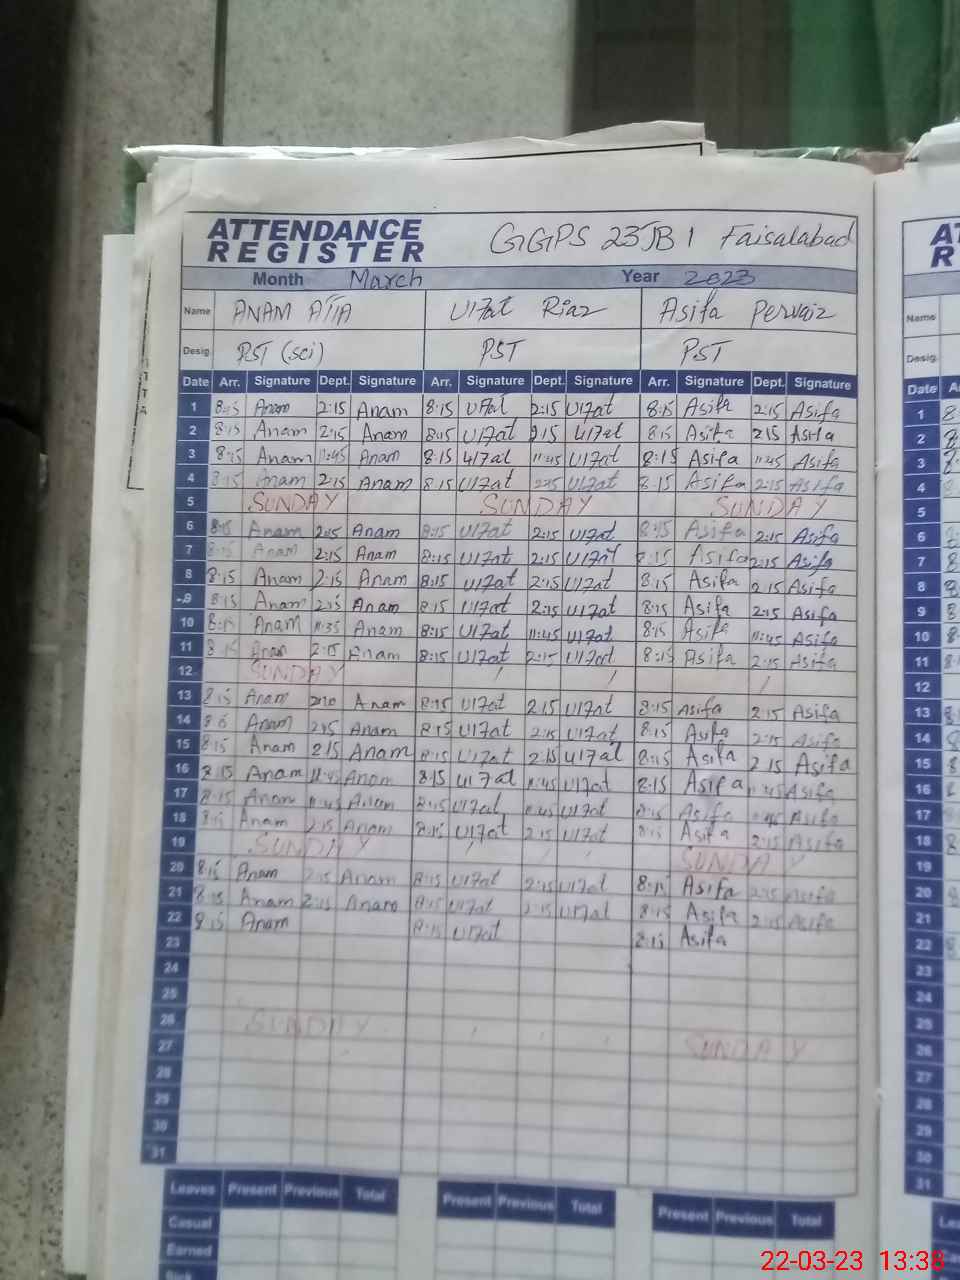 ATTENDANCE
REGISTER
GGPS 23JB 1 Faisalabad
Month March Year 2023
Name ANAM ATTA U17at Riaz Asifa Pervaiz
Desig. PST (sci) PST PST
Date Arr. Signature Dept. Signature Arr. Signature Dept. Signature Arr. Signature Dept. Signature
1 8:15 Anam 2:15 Anam 8:15 U17at 2:15 U17at 8:15 Asifa 2:15 Asifa
2 8:15 Anam 2:15 Anam 8:15 U17at 2:15 U17at 8:15 Asifa 2:15 Asifa
3 8:15 Anam 11:45 Anam 8:15 U17at 11:45 U17at 8:15 Asifa 11:45 Asifa
4 8:15 Anam 2:15 Anam 8:15 U17at 2:15 U17at 8:15 Asifa 2:15 Asifa
5 SUNDAY SUNDAY SUNDAY
6 8:15 Anam 2:15 Anam 8:15 U17at 2:15 U17at 8:15 Asifa 2:15 Asifa
7 8:15 Anam 2:15 Anam 8:15 U17at 2:15 U17at 8:15 Asifa 2:15 Asifa
8 8:15 Anam 2:15 Anam 8:15 U17at 2:15 U17at 8:15 Asifa 2:15 Asifa
9 8:15 Anam 2:15 Anam 8:15 U17at 2:15 U17at 8:15 Asifa 2:15 Asifa
10 8:15 Anam 11:35 Anam 8:15 U17at 11:45 U17at 8:15 Asifa 11:45 Asifa
11 8:15 Anam 2:15 Anam 8:15 U17at 2:15 U17at 8:15 Asifa 2:15 Asifa
12 SUNDAY
13 8:15 Anam Anam 8:15 U17at 2:15 U17at 8:15 Asifa 2:15 Asifa
14 8:15 Anam 2:15 Anam 8:15 U17at 2:15 U17at 8:15 Asifa 2:15 Asifa
15 8:15 Anam 2:15 Anam 8:15 U17at 2:15 U17at 8:15 Asifa 2:15 Asifa
16 8:15 Anam 11:45 Anam 8:15 U17at 11:45 U17at 8:15 Asifa 11:45 Asifa
17 8:15 Anam 11:45 Anam 8:15 U17at 11:45 U17at 8:15 Asifa 11:45 Asifa
18 8:15 Anam 2:15 Anam 8:15 U17at 2:15 U17at 8:15 Asifa 2:15 Asifa
19 SUNDAY SUNDAY
20 8:15 Anam 2:15 Anam 8:15 U17at 2:15 U17at 8:15 Asifa 2:15 Asifa
21 8:15 Anam 2:15 Anam 8:15 U17at 2:15 U17at 8:15 Asifa 2:15 Asifa
22 8:15 Anam 8:15 U17at 8:15 Asifa
23
24
25
26 SUNDAY SUNDAY
27
28
29
30
31
Leaves Present Previous Total Present Previous Total Present Previous Total
Casual
Earned
Name
Desig.
Date
1
2
3
4
5
6
7
8
9
10
11
12
13
14
15
16
17
18
19
20
21
22
23
24
25
26
27
28
29
30
31
22-03-23 13:38